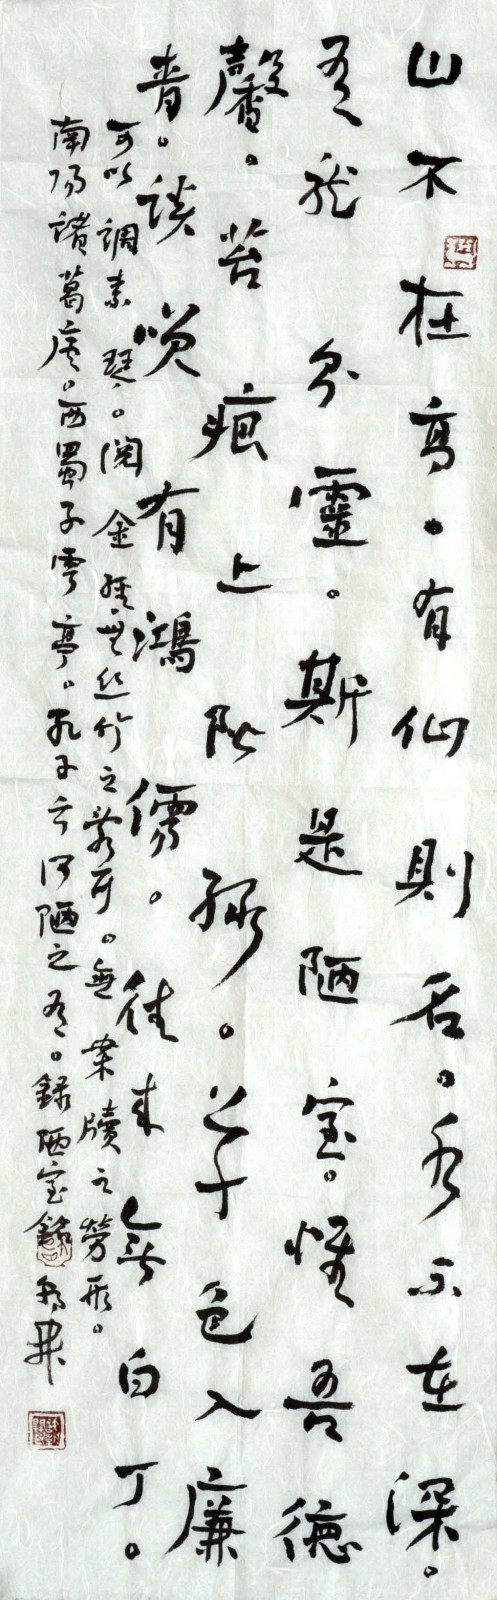 山不在高。有仙則名。水不在深。
有龍則靈。斯是陋室。惟吾德
馨。苔痕上階綠。草色入廉
青。談咲有鴻儒。往來無白丁。
可以調素琴。閱金經無絲竹之亂耳。無案牘之勞形。
南陽諸葛廬。西蜀子雲亭。孔子云何陋之有。錄陋室銘